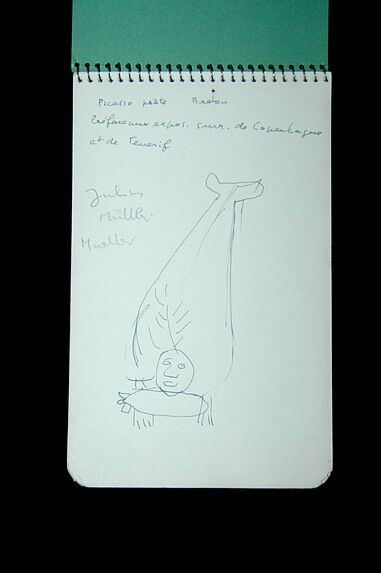 Picasso poète Breton
Préface aux expos. surr. de Copenhague
et de Tenerif
Julius
Müller
Mueller